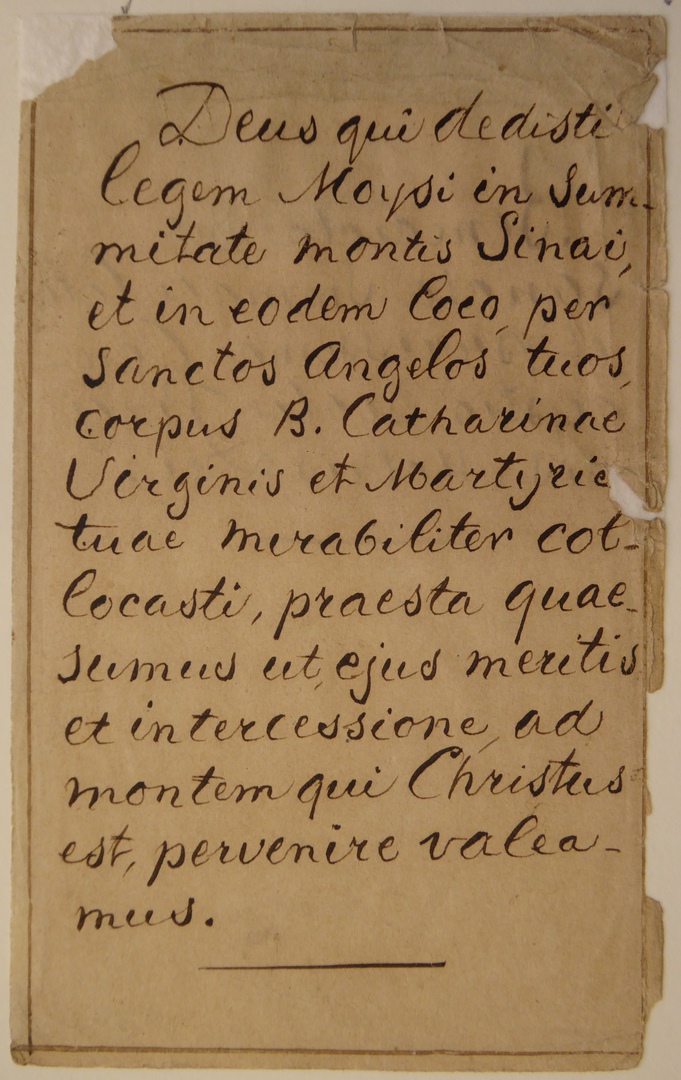 Deus qui dedisti
legem Moysi in Sum-
mitate montis Sinai,
et in eodem loco, per
Sanctos Angelos tuos,
corpus B. Catharinae
Virginis et Martyris
tuae mirabiliter col-
locasti, praesta quae-
sumus ut, ejus meritis
et intercessione, ad
montem qui Christus
est, pervenire valea-
mus.